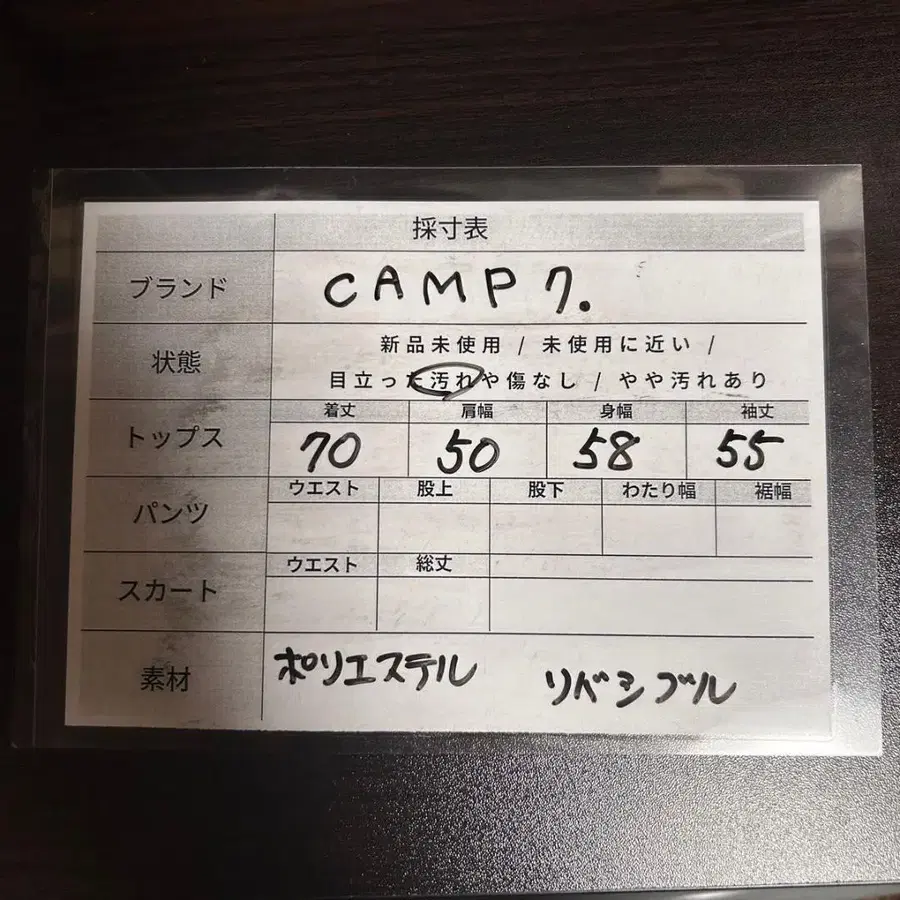 採寸表
ブランド CAMP 7.
状態 新品未使用 / 未使用に近い /
目立った汚れや傷なし / やや汚れあり
着丈 肩幅 身幅 袖丈
トップス 70 50 58 55
ウエスト 股上 股下 わたり幅 裾幅
パンツ
ウエスト 総丈
スカート
素材 ポリエステル リバシブル